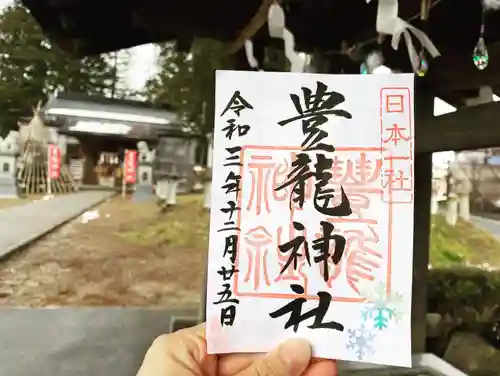 日本一社
豊龍神社
豐龍
神社
令和三年十二月廿五日